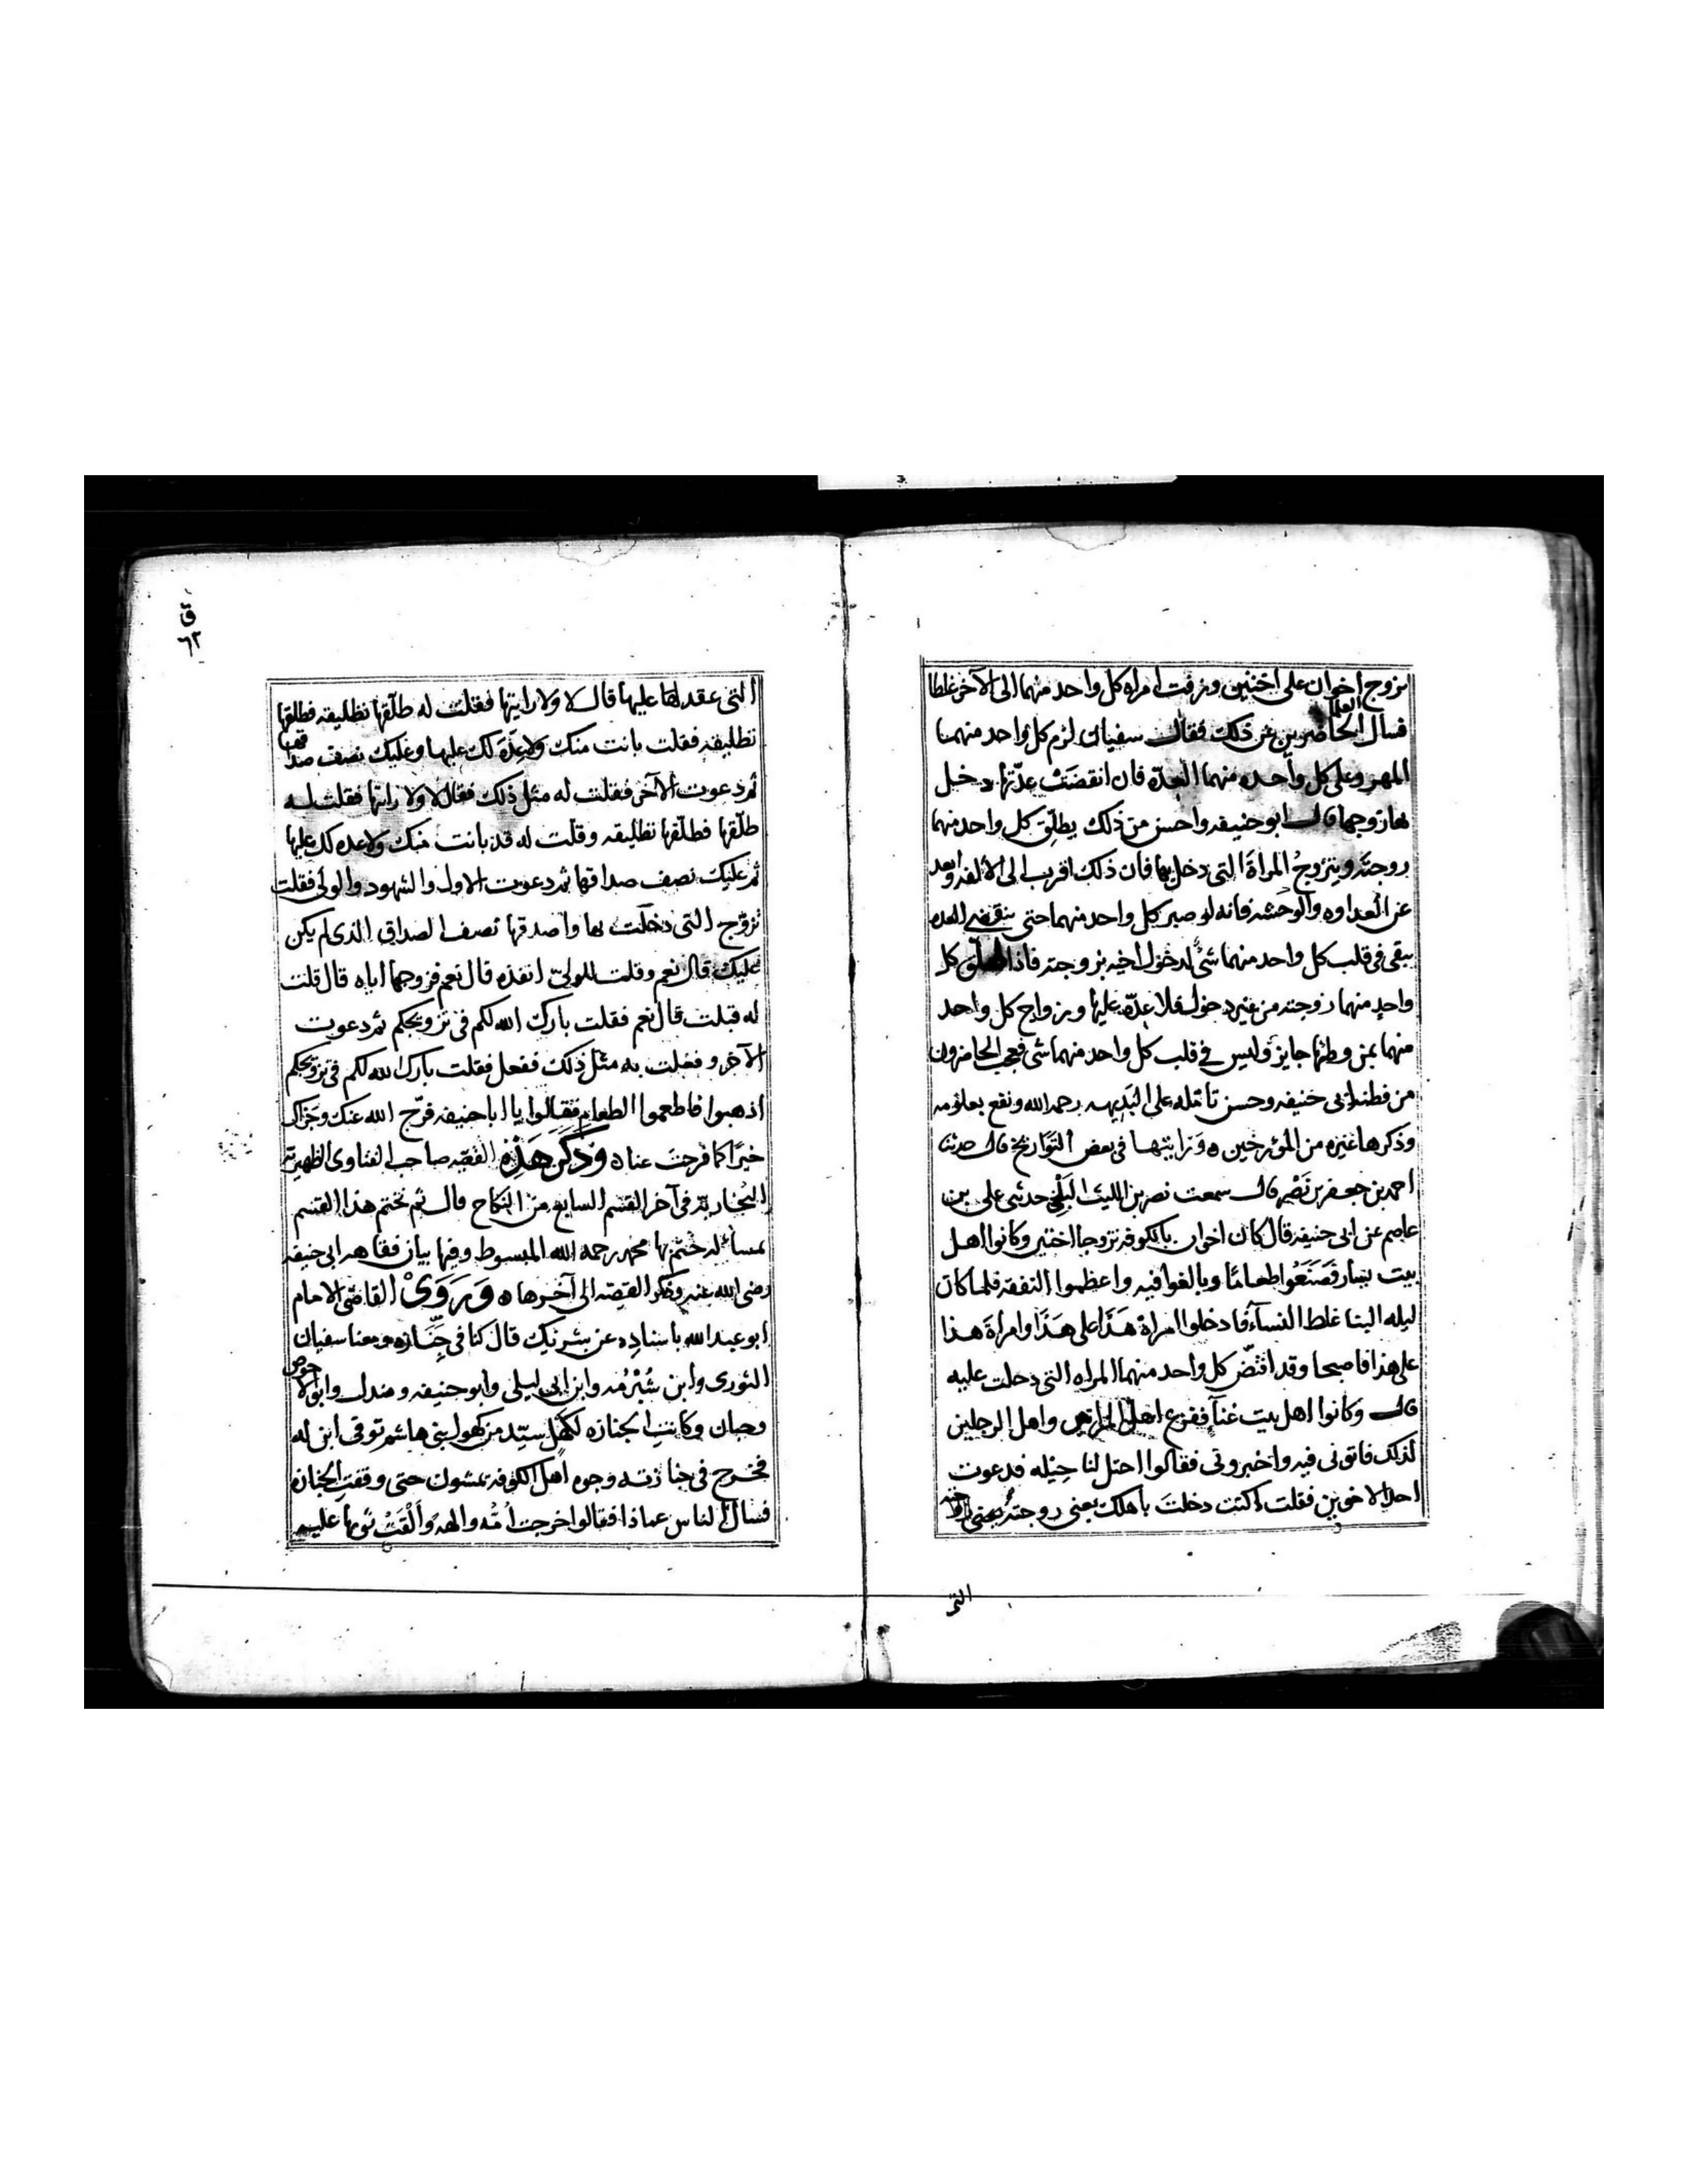 تزوج اخوان على اختين وزفت امراة كل واحد منهما الى الآخر غلطا
فسال العلما الحاضرين عن ذلك فقال سفيان لزم كل واحد منهما
المهر وعلى كل واحده منهما العدّه فان انقضَتْ عدّتها دخل
بها زوجها قال ابو حنيفه واحسن من ذلك يطلّق كل واحد منهما
زوجته ويتزوجُ المراةَ التى دخل بها فان ذلك اقرب الى الألفه وابعد
عن العداوه والوحشه فانه لو صبر كل واحد منهما حتى ينقضى العده
يبقى فى قلب كل واحد منهما شئ لدخول اخيه بزوجته فاذا طلّق كل
واحد منهما زوجته من غير دخول فلا عدّة عليها وبزواج كل واحد
منهما بمن وطئها جايز وليس فى قلب كل واحد منهما شى فعجب الحاضرون
من فطنة ابى حنيفه وحسن تامّله على البَدِيهه رحمه الله ونفع بعلومه
وذكرها غيره من المؤرخين ه وَرَايتها فى بعض التَّوَاريخ قال حدثنا
احمد بن جعفر بن نَصْر قال سمعت نصر بن الليث البَلْخى حدثنى على بن
عاصم عن ابى حنيفه قال كان اخوان بالكوفه تزوجا اختين وكانوا اهل
بيت يسار فَصَنَعُوا طعامًا وبالغوا فيه واعظموا النفقه فلما كان
ليله البنا غلط النسآءُ فادخلوا امراة هَذَا على هَذَا وامراةَ هذا
على هذا فاصبحا وقد افتضّ كل واحد منهما المراه التى دخلت عليه
قال وكانوا اهل بيت غنآ ففزع اهل المراتين واهل الرجلين
لذلك فاتونى فيه واخبرونى فقالوا احتل لنا حِيْله فدعوت
احد الاخوين فقلت اكنت دخلتَ باهلك يعنى زوجته
التى
ق
٦٢
التى عقد لها عليها قال لا ولا رايتها فقلت له طلّقها تطليقه فطلقها
تطليقه فقلت بانت منك ولا عدّة لك عليها وعليك نصف صداقها
ثم دعوت الآخر فقلت له مثل ذلك فقال لا ولا رايتها فقلت له
طلّقها فطلّقها تطليقه وقلت له قد بانت منك ولا عده لك عليها
ثم عليك نصف صداقها ثم دعوت الاول والشهود والولى فقلت
تزوّج التى دخلت بها واصدقها نصف الصداق الذى لم يكن
عليك قال نعم وقلت للولىّ انفذه قال نعم فزوجها اياه قال قلت
له قبلت قال نعم فقلت بارك الله لكم فى تزويجكم ثم دعوت
الآخر وفعلت به مثل ذلك ففعل فقلت بارك الله لكم فى تزويجكم
اذهبوا فاطعموا الطعام فقالوا يا ابا حنيفه فرّج الله عنك وجزاك
خيرًا كما فرجت عنا ه وَذَكَرَ هَذِه القصّه صاحب الفتاوى الظهيريّه
البُخاريّه فى آخر القسم السابع من النكاح قال ثم نختم هذا القسم
بمسأله ختم بها محمد رحمه الله المبسوط وفيها بيان فقاهة ابى حنيفه
رضى الله عنه وذكر القصّه الى آخرها ه وَرَوَىْ القاضى الامام
ابو عبد الله باسناده عن شريك قال كنا فى جِنَازه ومعنا سفيان
الثورى وابن شُبْرُمُه وابن ابى ليلى وابو حنيفه ومندل وابو الاحوص
وحبان وكانت الجنازه لكهل سيّد من كهول بنى هاشم توفى ابن له
فخرج فى جنازته وجوه اهل الكوفه يمشون حتى وقفت الجنازة
فسال الناس عماذا فقالوا خرجت اُمّه والهه وَاَلْقَتْ ثوبها عليه